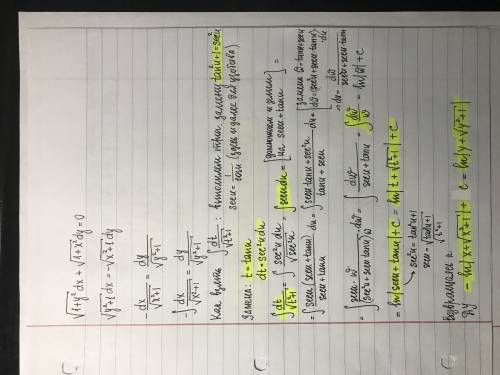 √(1+y²) dx + √(1+x²) dy = 0
√(y²+1) dx = -√(x²+1) dy
-dx/√(x²+1) = dy/√(y²+1)
∫ dx/√(x²+1) = dy/√(y²+1)
Как взять ∫ dt/√(t²+1) : выполним триг. замену tan²u+1=sec²u
secu = 1 (здесь и далее для удобства)
Замена: t = tanu
dt = sec²u du
∫ dt/√(t²+1) = ∫ sec²u du/√(sec²u) = ∫ secu du = [домножаем и делим на secu + tanu] =
= ∫ secu (secu + tanu)/(secu + tanu) du = ∫ (secu tanu + sec²u)/(tanu + secu) du = [замена ω = tanu + secu
dω = (sec²u + secu tanu) du
⇒ du = dω/(sec²u + secu tanu)
= ∫ secu · ω/((sec²u + secu tanu) ω) · dω = ∫ dω/(secu + tanu) = ∫ dω/ω = ln|ω| + c
= ln|secu + tanu| + c = ln|t + √(t²+1)| + c
sec²u = tan²u + 1
secu = √(tan²u + 1)
√(t²+1)
Возвращаемся к
ДУ -ln|x + √(x²+1)| + c = ln|y + √(y²+1)|